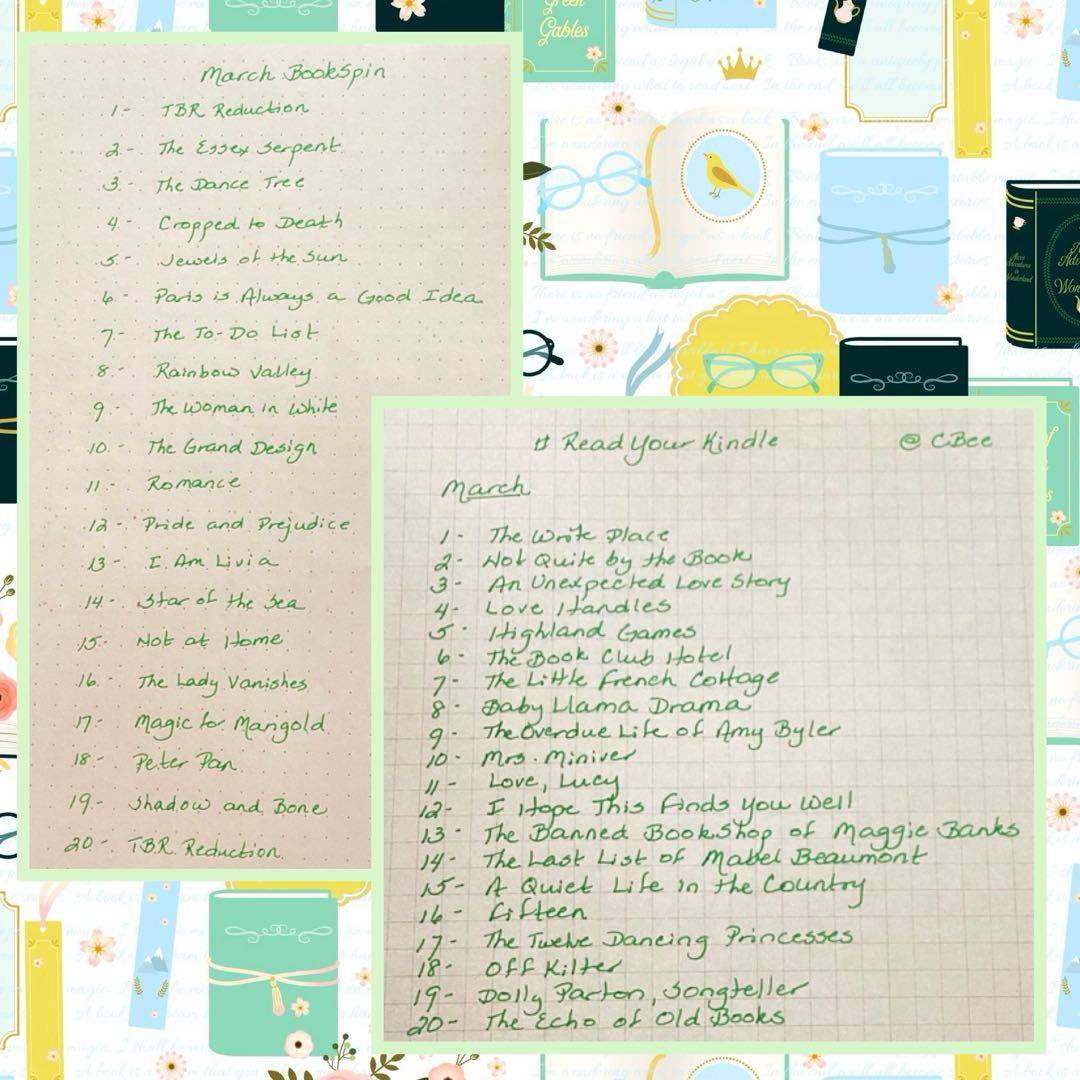 March Bookspin
1- TBR Reduction
2- The Essex Serpent
3- The Dance Tree
4- Cropped to Death
5- Jewels of the Sun
6- Paris is Always a Good Idea
7- The To-Do List
8- Rainbow Valley
9- The Woman in White
10- The Grand Design
11- Romance
12- Pride and Prejudice
13- I Am Livia
14- Star of the Sea
15- Not at Home
16- The Lady Vanishes
17- Magic for Marigold
18- Peter Pan
19- Shadow and Bone
20- TBR Reduction
# Read Your Kindle @ CBee
March
1- The Write Place
2- Not Quite by the Book
3- An Unexpected Love Story
4- Love Handles
5- Highland Games
6- The Book Club Hotel
7- The Little French Cottage
8- Baby Llama Drama
9- The Overdue Life of Amy Byler
10- Mrs. Miniver
11- Love, Lucy
12- I Hope This Finds You Well
13- The Banned BookShop of Maggie Banks
14- The Last List of Mabel Beaumont
15- A Quiet Life in the Country
16- Fifteen
17- The Twelve Dancing Princesses
18- Off Kilter
19- Dolly Parton, Songteller
20- The Echo of Old Books
Green
Gables